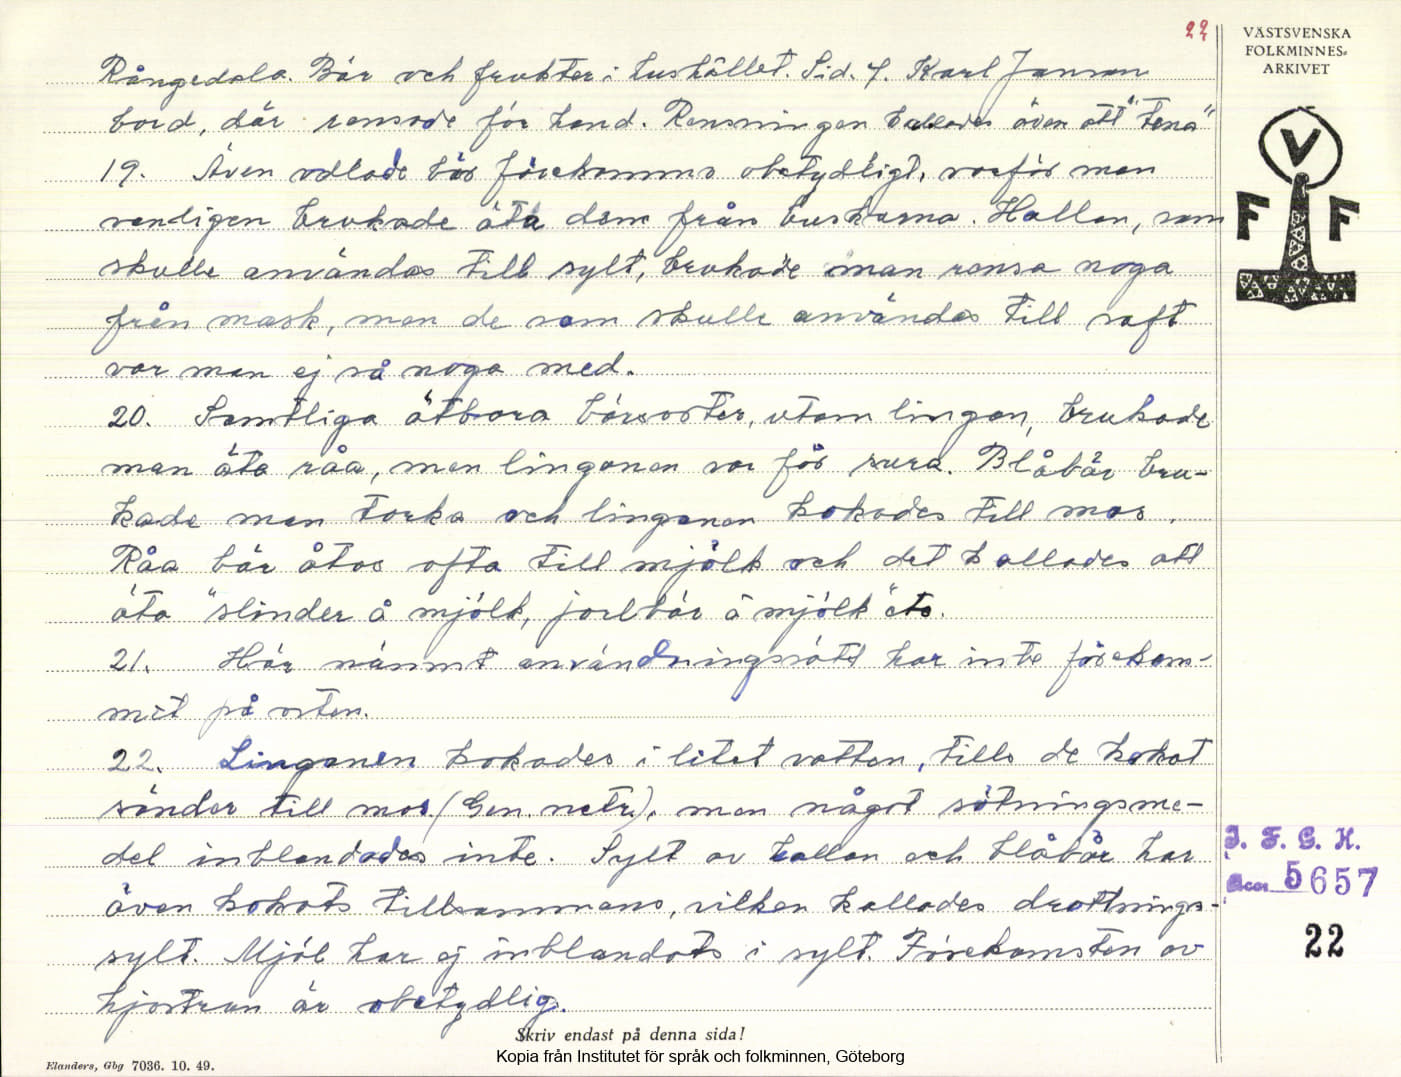 22
VÄSTSVENSKA
FOLKMINNES-
ARKIVET
V
F F
Rångedala. Bär och frukter i hushållet. Sid. 7. Karl Janson
bord, där rensade för hand. Rensningen kallades även att "tena"
19. Även odlade bär förekomma obetydligt, varför man
vanligen brukade äta dem från buskarna. Hallon, som
skulle användas till sylt, brukade man rensa noga
från mask, men de som skulle användas till saft
var man ej så noga med.
20. Samtliga ätbara bärsorter, utom lingon, brukade
man äta råa, men lingonen var för sura. Blåbär bru-
kade man torka och lingonen kokades till mos.
Råa bär åtos ofta till mjölk och det kallades att
äta "slinder å mjölk, jorbär å mjölk" etc.
21. Här nämnt användningssätt har inte förekom-
mit på orten.
22. Lingonen kokades i litet vatten, tills de kokat
sönder till mos (Gen. neutr.), men något sötningsme-
del inblandades inte. Sylt av hallon och blåbär har
även kokats tillsammans, vilken kallades drottnings-
sylt. Mjöl har ej inblandats i sylt. Förekomsten av
hjortron är obetydlig.
I. F. G. H.
Acc. 5657
22
Skriv endast på denna sida!
Kopia från Institutet för språk och folkminnen, Göteborg
Elanders, Gbg 7036. 10. 49.